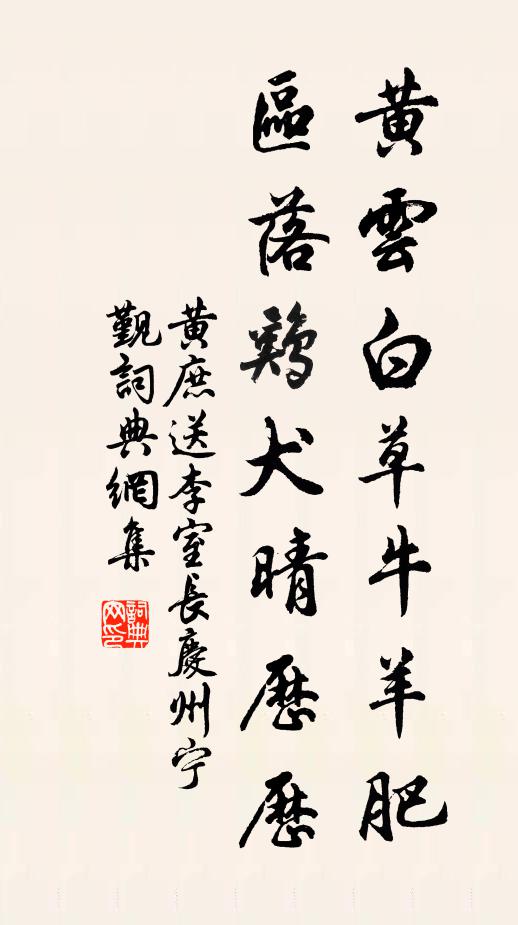 黄雲白草牛羊肥
區落鷄犬晴歷歷
黄庶送李室長慶州宁
觀詞典網集
詞典
网印